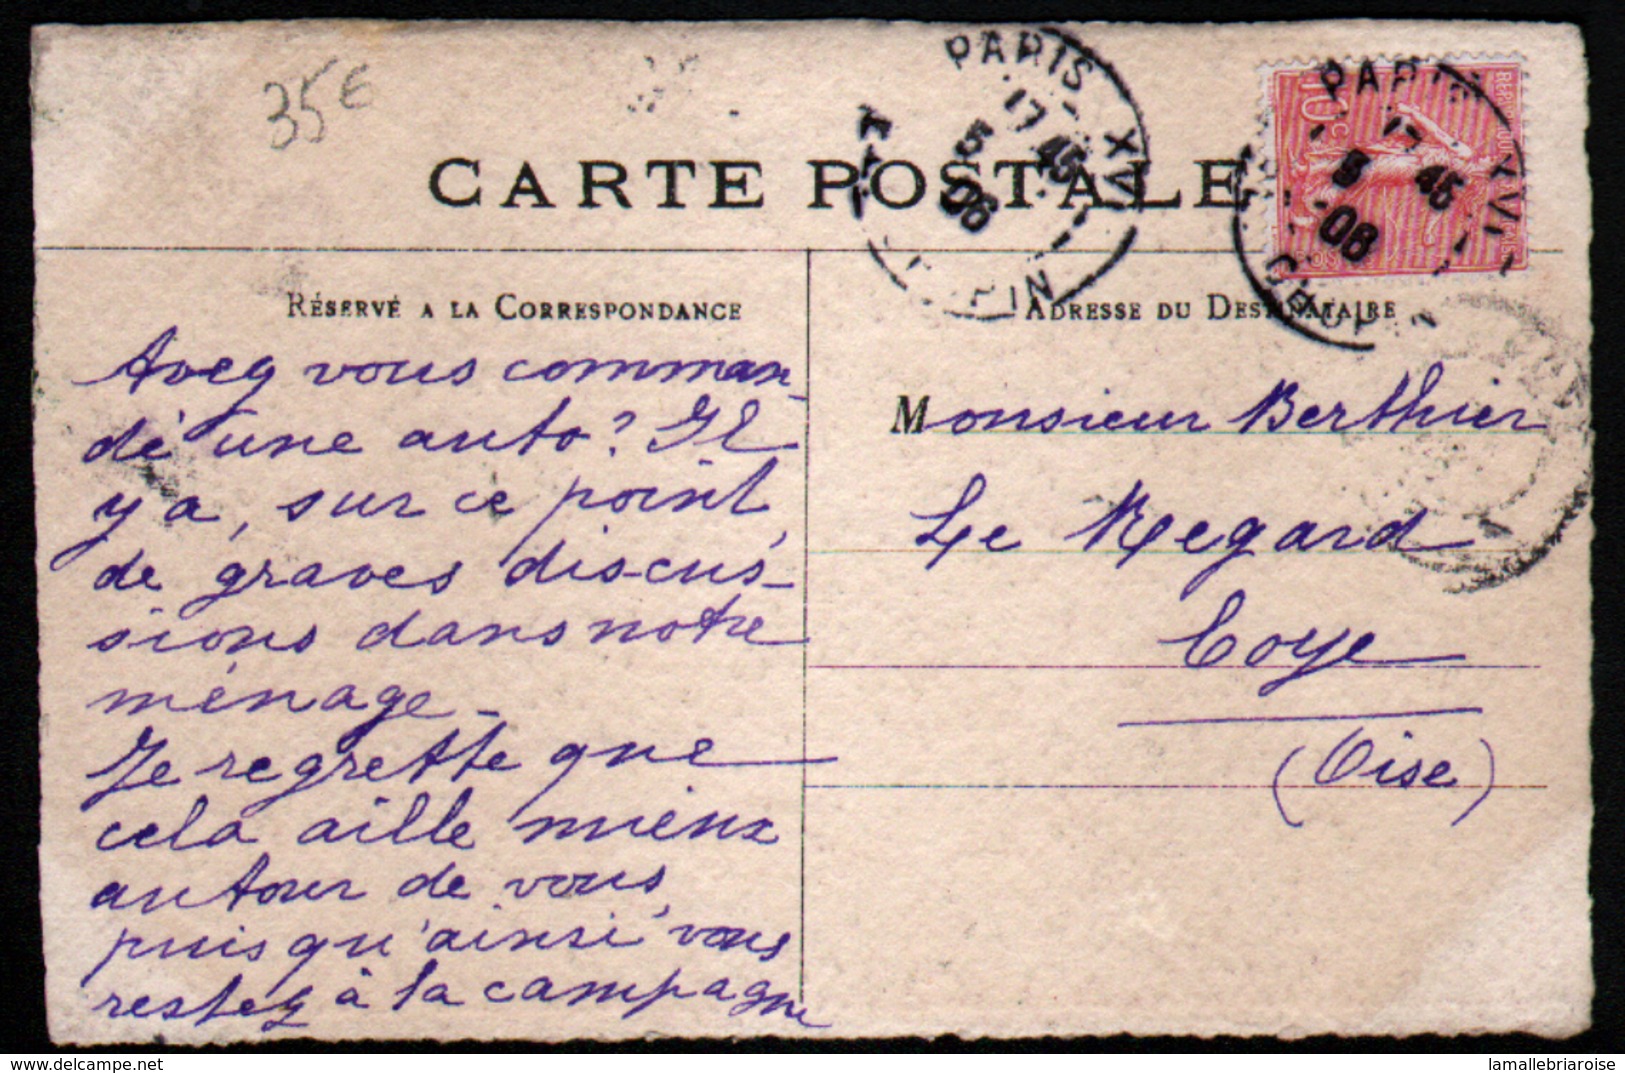 35€
CARTE POSTALE
PARIS XVII
17 45
5
06
PARIS XVII
17 45
5
06
10c
RÉSERVÉ A LA CORRESPONDANCE
Avez vous comman-
dé une auto? Il
y a, sur ce point,
de graves discus-
sions dans notre
ménage-
Je regrette que
cela aille mieux
autour de vous,
puis qu'ainsi vous
restez à la campagne
ADRESSE DU DESTINATAIRE
Monsieur Berthier
Le Regard
Coye
(Oise)
www.delcampe.net
lamallebriaroise